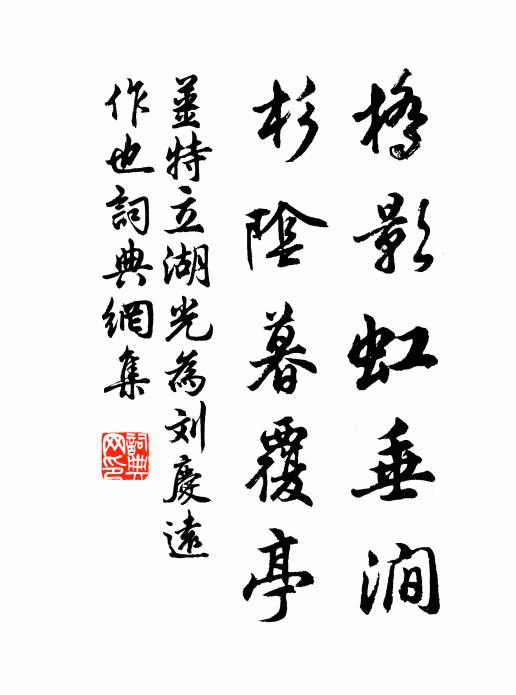 橋影虹垂澗
杉陰暮覆亭
姜特立湖光為刘慶遠
作也詞典網集
詞典網印